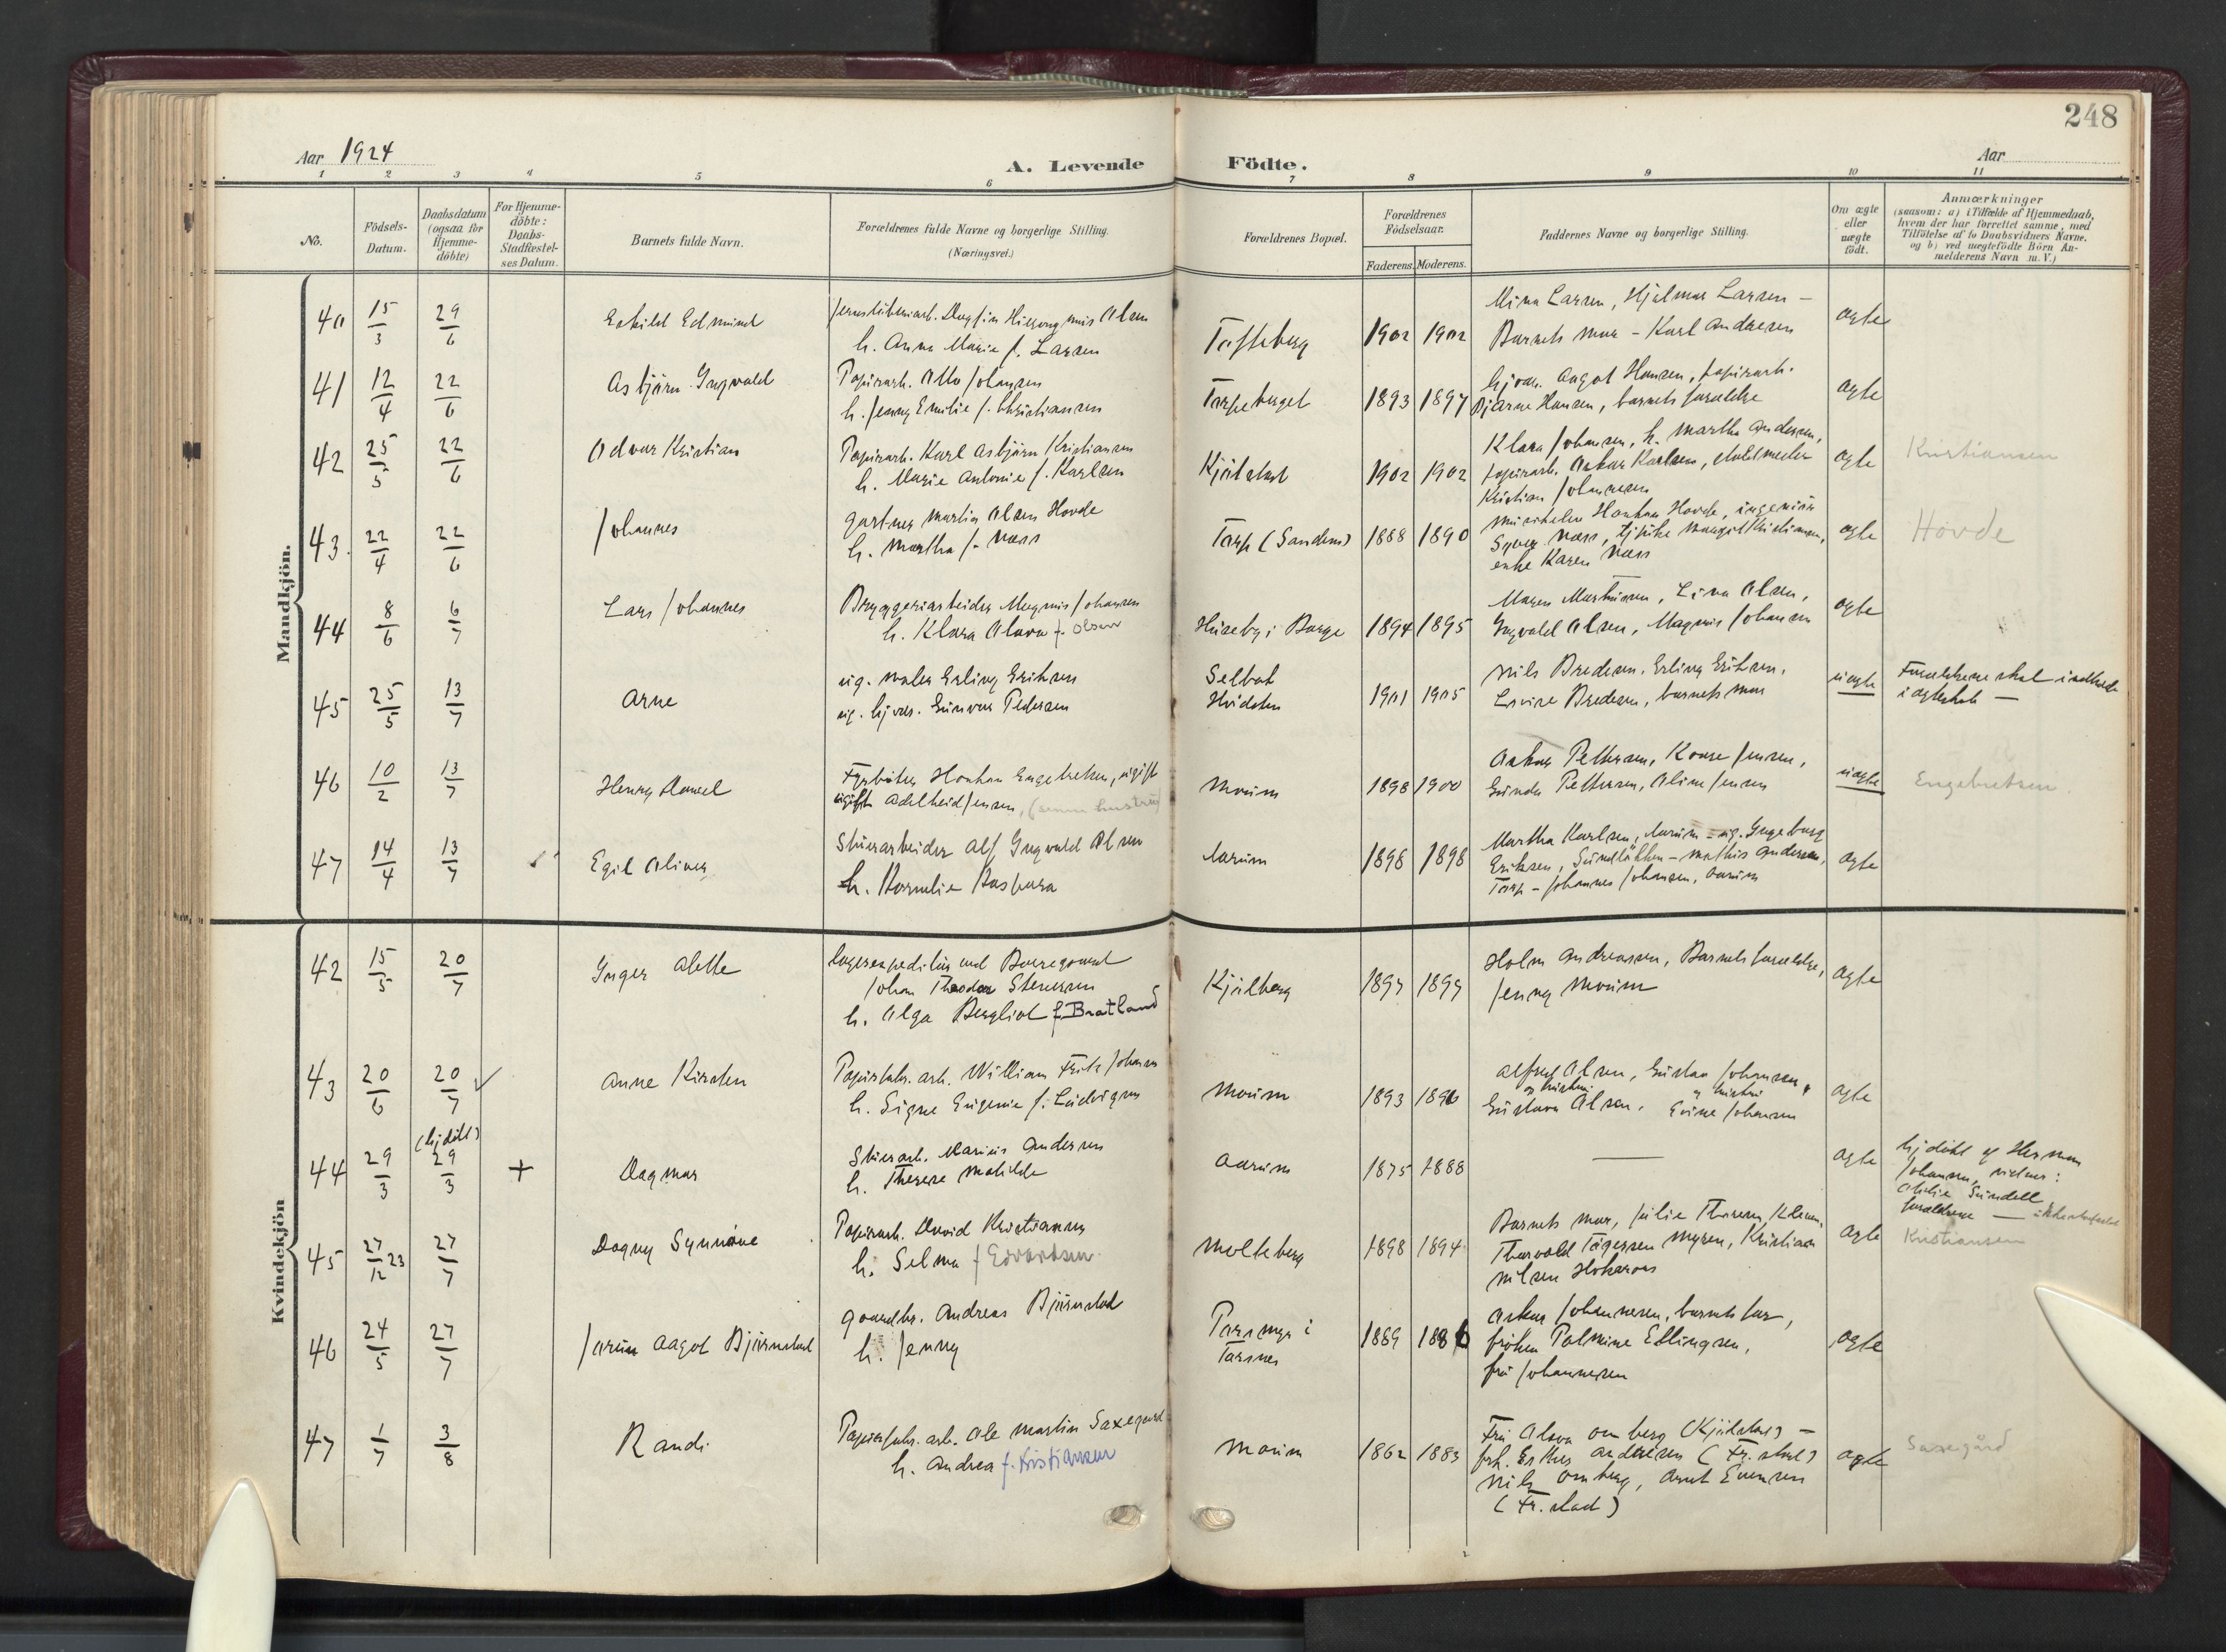 248
Aar 1924
A. Levende Födte.
Aar
1 2 3 4 5 6 7 8 9 10 11
No.
Födsels-
Datum.
Daabsdatum
(ogsaa for
Hjemme-
döbte)
For Hjemme-
döbte:
Daabs-
Stadfæstel-
ses Datum.
Barnets fulde Navn.
Forældrenes fulde Navne og borgerlige Stilling.
(Næringsvei.)
Forældrenes Bopæl.
Forældrenes
Födselsaar.
Faderens. Moderens.
Faddernes Navne og borgerlige Stilling.
Om ægte
eller
uægte
födt.
Anmærkninger
(saasom: a) i Tilfælde af Hjemmedaab,
hvem der har forrettet samme, med
Tilföielse af to Daabsvidners Navne,
og b) ved uægtefödte Börn An-
melderens Navn m. V.)
Mandkjön.
40 15/3 29/6
Eskild Edmund
Olsen
h. Anna Marie f. Larsen
Tofteberg
1902 1902
Mina Larsen, Hjalmar Larsen –
Barnets mor – Karl Andresen
ægte
41 12/4 22/6
Asbjørn Ingvald
Papirarb. Otto Johansen
h. Jenny Emilie f. Christiansen
Torpeberget
1893 1897
Aagot Hansen, papirarb.
Bjarne Hansen, barnets forældre
ægte
42 25/5 22/6
Odvar Kristian
Papirarb. Karl Asbjørn Kristiansen
h. Marie Antonie f. Karlsen
Kjølstad
1902 1902
Klara Johansen, h. Martha Andersen,
papirarb. Oskar Karlsen,
Kristian Johannesen
ægte
Kristiansen
43. 22/4 22/6
Johannes
gartner Martin Olsen Hovde
h. Martha f. Næss
Torp (Sandem)
1888 1890
Haakon Hovde, ingeniør
Næss, Margit Kristiansen,
enke Karen Næss
ægte
Hovde
44 8/6 6/7
Lars Johannes
Bryggeriarbeider Magnus Johansen
h. Klara Olava f. Olsen
Huseby i Borge
1894 1895
Maren Martinsen, Lina Olsen,
Ingvald Olsen, Magnus Johansen
ægte
45 25/5 13/7
Arne
ug. maler Erling Eriksen
ug. Gunvor Pedersen
Selbak
Hvidsten
1901 1905
Nils Bredesen, Erling Eriksen,
Lovise Bredesen, barnets mor
uægte
Forældrene skal indtræde
i ægteskab —
46 10/2 13/7
Henry Daniel
Fyrbøter Haakon Engebretsen, ugift
ugift Adelheid Jensen, (senere hustru)
Moum
1898 1900
Oskar Pettersen, Kaare Jensen,
Gunda Pettersen, Oline Jensen
uægte
Engebretsen
47 14/4 13/7
Egil Oliver
Skiearbeider Alf Ingvald Olsen
h. Kornelie Kaspara
Aarum
1898 1898
Martha Karlsen, Aarum – ug. Ingeborg
Eriksen, Sundløkken – Mathis Andersen,
Torp – Johannes Johansen, Aarum
ægte
Kvindekjön
42 15/5 20/7
Inger Alette
lagerexpeditør ved Borregaard
Johan Theodor Stenersen
h. Olga Bergliot f. Bratland
Kjølberg
1897 1899
Holm Andreassen, Barnets forældre,
Jenny Moum
ægte
43 20/6 20/7
Anne Kirsten
Papirfabr. arb. William Fritz Johansen
h. Signe Eugenie f. Ludvigsen
Moum
1893 1896
Alfred Olsen, Gustav Johansen,
og hustru og hustru
Gustava Olsen, Evine Johansen
ægte
(hj.døbt)
44 29/3 29/3 +
Dagmar
Skiearb. Marius Andersen
h. Therese Mathilde
Aarum
1875 1888
—
ægte
hj.døbt af Herman
Johansen, vidner:
Othilie Sundell,
forældrene —
45 27/12 23 27/7
Dagny Synnøve
Papirarb. David Kristiansen
h. Selma f. Edvardsen
Molteberg
1898 1894
Barnets mor, Julie Thoresen Kleven,
Thorvald Tøgersen Myren, Kristian
Nilsen Hokaroa
ægte
Kristiansen
46 24/5 27/7
Jorun Aagot Bjørnstad
gaardbr. Andreas Bjørnstad
h. Jenny
i
Torsnes
1889 1886
Oskar Johannesen, barnets far,
frøken Palmine Ellingsen,
fru Johannesen
ægte
47 1/7 3/8
Randi
Papirfabr. arb. Ole Martin Saxegaard
h. Andrea f. Kristiansen
Moum
1862 1883
Fru Olava Omberg (Kjølstad) –
frk. Esther Andresen (Fr.stad)
Nils Omberg, Arnt Evensen
(Fr.stad)
ægte
Saxegård